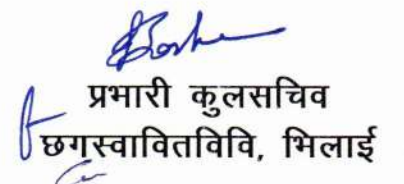 प्रभारी कुलसचिव
छगस्वावितविवि, भिलाई